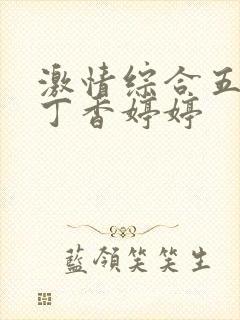 激情综合五
丁香婷婷
藍領笑笑生